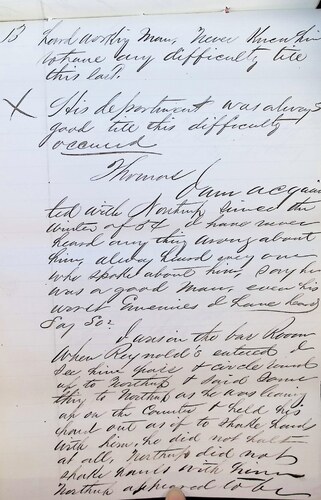 13 hard working Man, Never Knew him
to have any difficulty till
this last.
X His department was always
good till this difficulty
occured
Thomas I am acquain
ted with Northup since the
winter of 54 I have never
heard any thing wrong about
him, alway heard every one
who spoke about him, say he
was a good man, even his
worst Enemies I have heard
Say So.
I was in the bar Room
When Reynold's entered I
see him pass & circle round
up to Northup & said Some
thing to Northup as he was leaning
up on the Counter & held his
hand out as if to shake hands
with him, he did not halt
at all, Northup did not
shake hands with him
Northup appeared to be